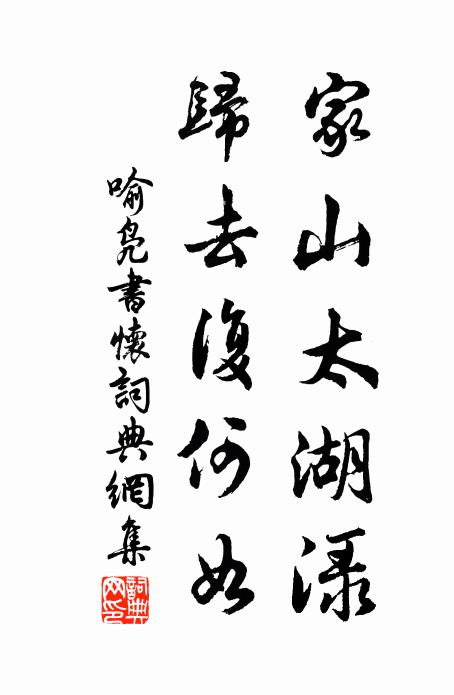 家山太湖渌
歸去復何如
喻凫書懷詞典網集
詞典網印